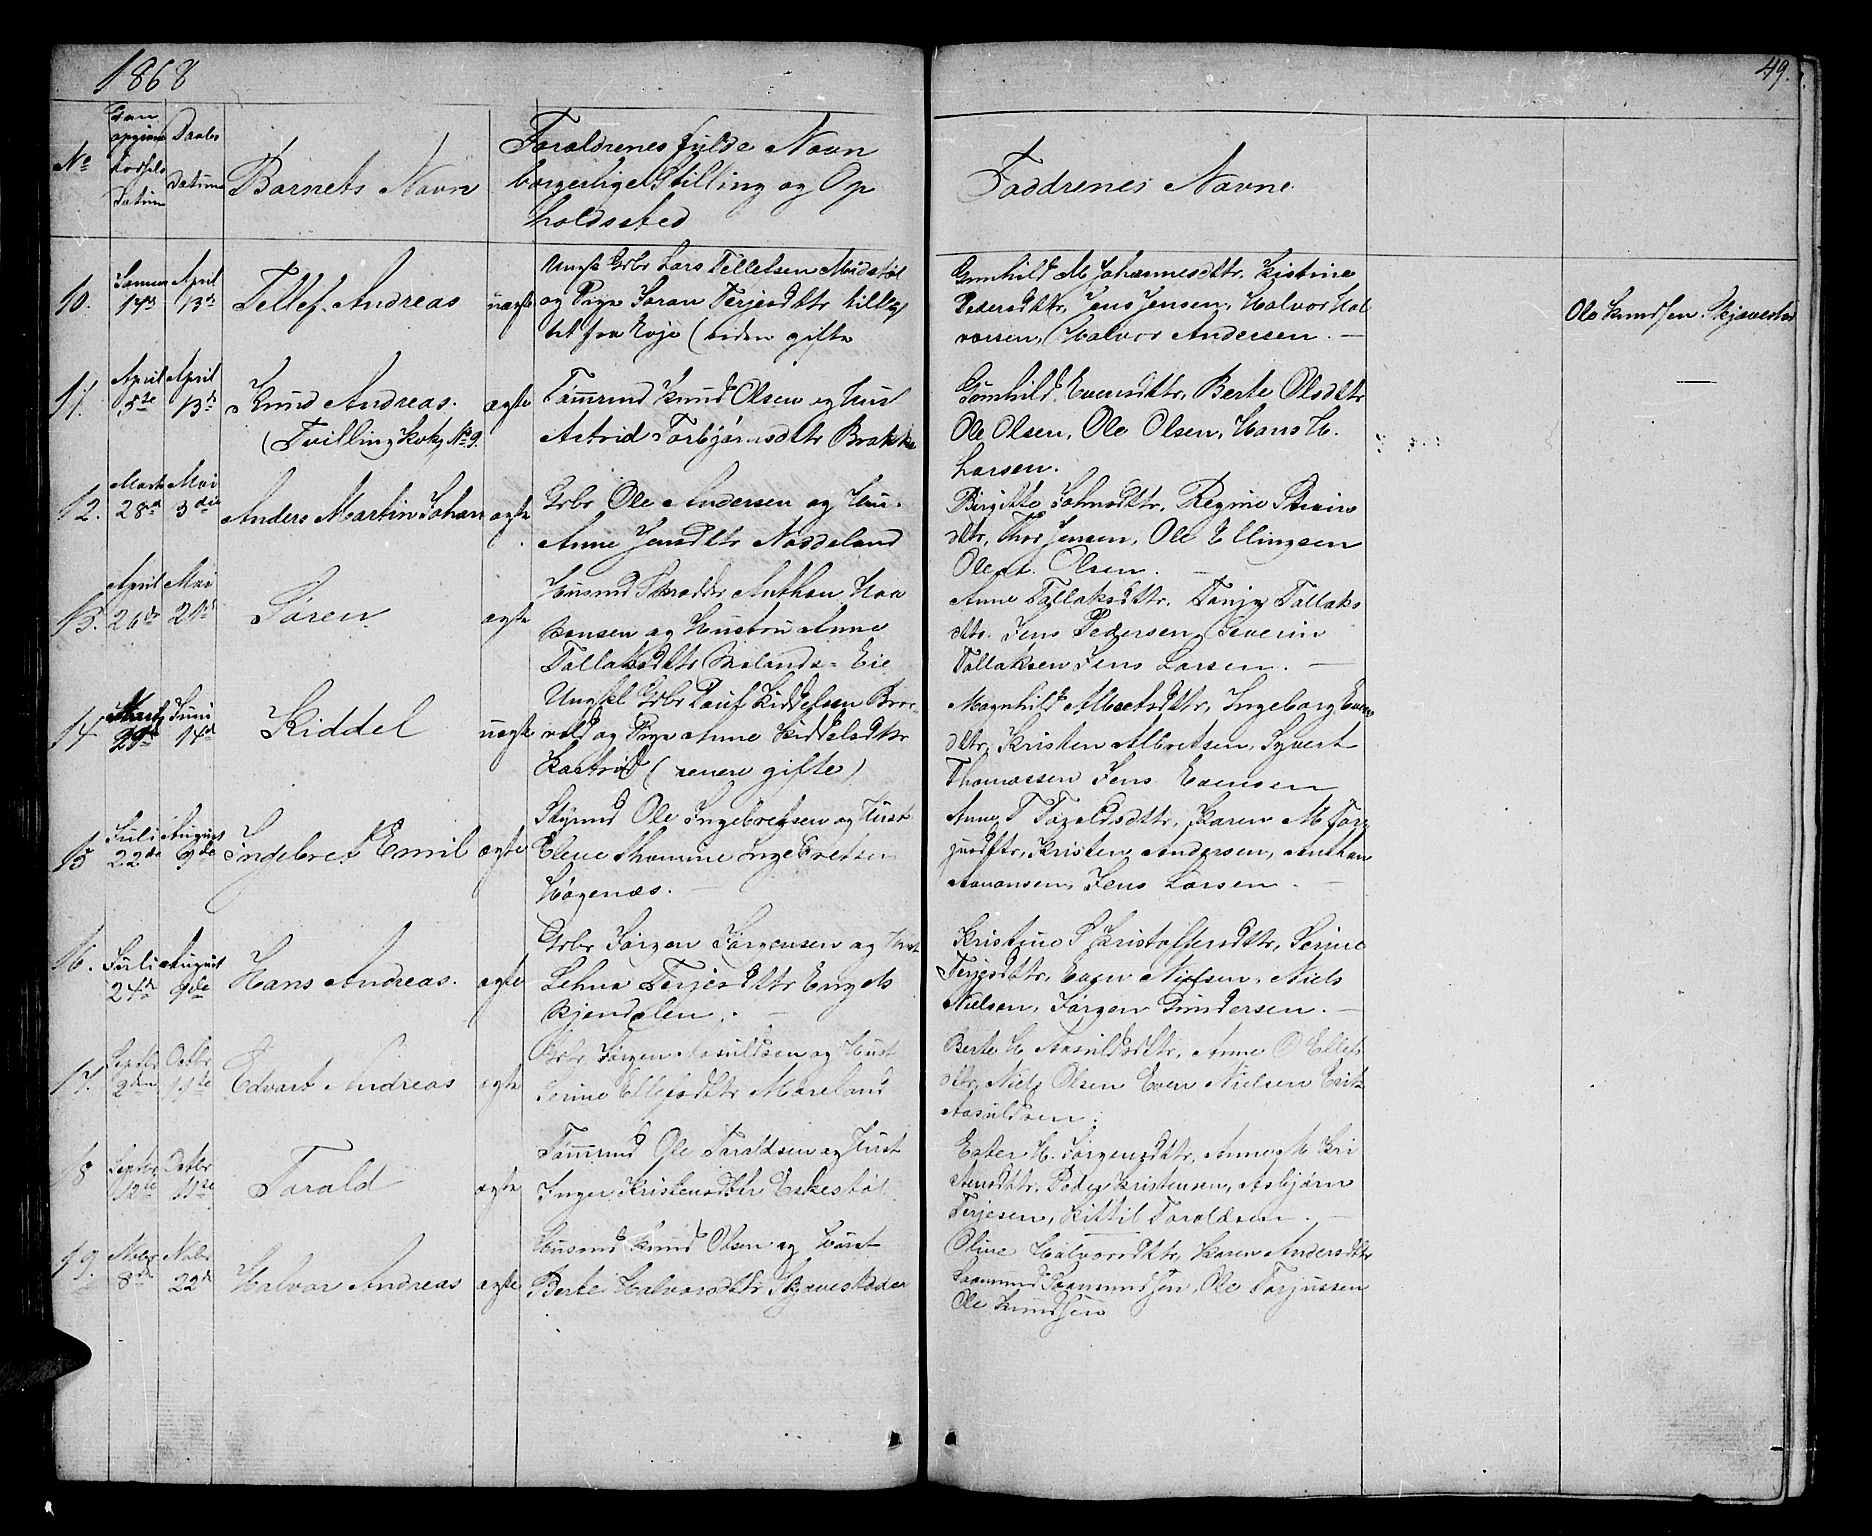 1868
49.
No
Den opgivne Fødsels Datum
Daabs Datum
Barnets Navn
Forældrenes fulde Navn
borgerlige Stilling og Op
holdssted
Faddrenes Navne.
10.
14de
April
13de
Tellef Andreas
uægte
Ungk Grbr Lars Tellefsen
og Pige Søran Terjesdttr
fra Evje (siden gifte
Gunhild M Johannesdttr, Kistine
Pedersdttr, Jens Jensen, Halvor Hal
vorsen, Halvor Andersen. —
Ole Knudsen. Skjævestad
11.
April
5te
April
13de
Knud Andreas.
(Tvilling kok, No 9.
ægte
Tømmd Knud Olsen og Hust
Astrid Torbjørnsdttr Brække
Gunhild Evensdttr, Berte Olsdttr
Ole Olsen, Ole Olsen, Hans H.
Larsen.
—
12.
Marts
28de
Mai
3die
Anders Martin Johan
ægte
Grbr Ole Andersen og Hus.
Anne Jensdttr Nædeland
Birgitte Johnsdttr, Regine
dttr, Thor Jensen, Ole Ellingsen
Ole A. Olsen. —
13.
April
26de
Mai
21de
Søren
ægte
Husmd Skrædder Anthon Haa
konsen og Hustru Anne
Tallaksdttr Eie
Anne Tallaksdttr, Tonje Tallaks
dttr. Jens Pedersen, Severin
Tallaksen Jens Larsen. —
14
Juni
14de
Kiddel
uægte
Ungkl Grbr Kiddelsen
vold og Pige Anne Kiddelsdttr
(senere gifte)
Magnhild Albretsdttr, Ingeborg Evens
dttr, Kristen Albretsen, Syvert
Thomassen Jens Evensen
15
Juli
22de
August
9de
Ingebret Emil
ægte
Ole Ingebretsen og Hust
Elene Ingebretsen
Høgenæs. —
Anne T Taraldsdttr, Karen M Tor
jusdttr, Kristen Andersen, Anthon
Aanonsen, Jens Larsen. —
16.
Juli
24de
August
9de
Hans Andreas.
ægte
Grbr Jørgen Jørgensen og Hust
Lehne Terjesdttr Engels
kjøndalen. —
Kristine S Kristoffersdttr, Serine
Terjesdttr, Even Nielsen, Niels
Nielsen, Jørgen Gundersen. —
17.
Septbr
2den
Octbr
11te
Edvart Andreas
ægte
Grbr Jørgen Aasuldsen og Hust
Serine Ellefsdttr Moreland
Berte H Aasuldsdttr, Anne O Ellefs
dttr, Niels Olsen Even Nielsen Erik
Aasuldsen.
18
Septbr
12te
Octbr
11te
Torald
ægte
Tømmd Ole Taraldsen og Hust
Inger Kristensdttr Eskestøl
Ester H. Jørgensdttr, Anne M Kri
stensdttr, Peder Kristensen, Asbjørn
Terjesen, Kittil Taraldsen. —
19.
Novbr
8de
Novbr
22de
Halvor Andreas
ægte
Husmd Knud Olsen og Hust
Berte Halvorsdttr
Oline Halvorsdttr, Karen Andersdttr
Saamund Saamundsen, Ole Torjussen
Ole Knudsen